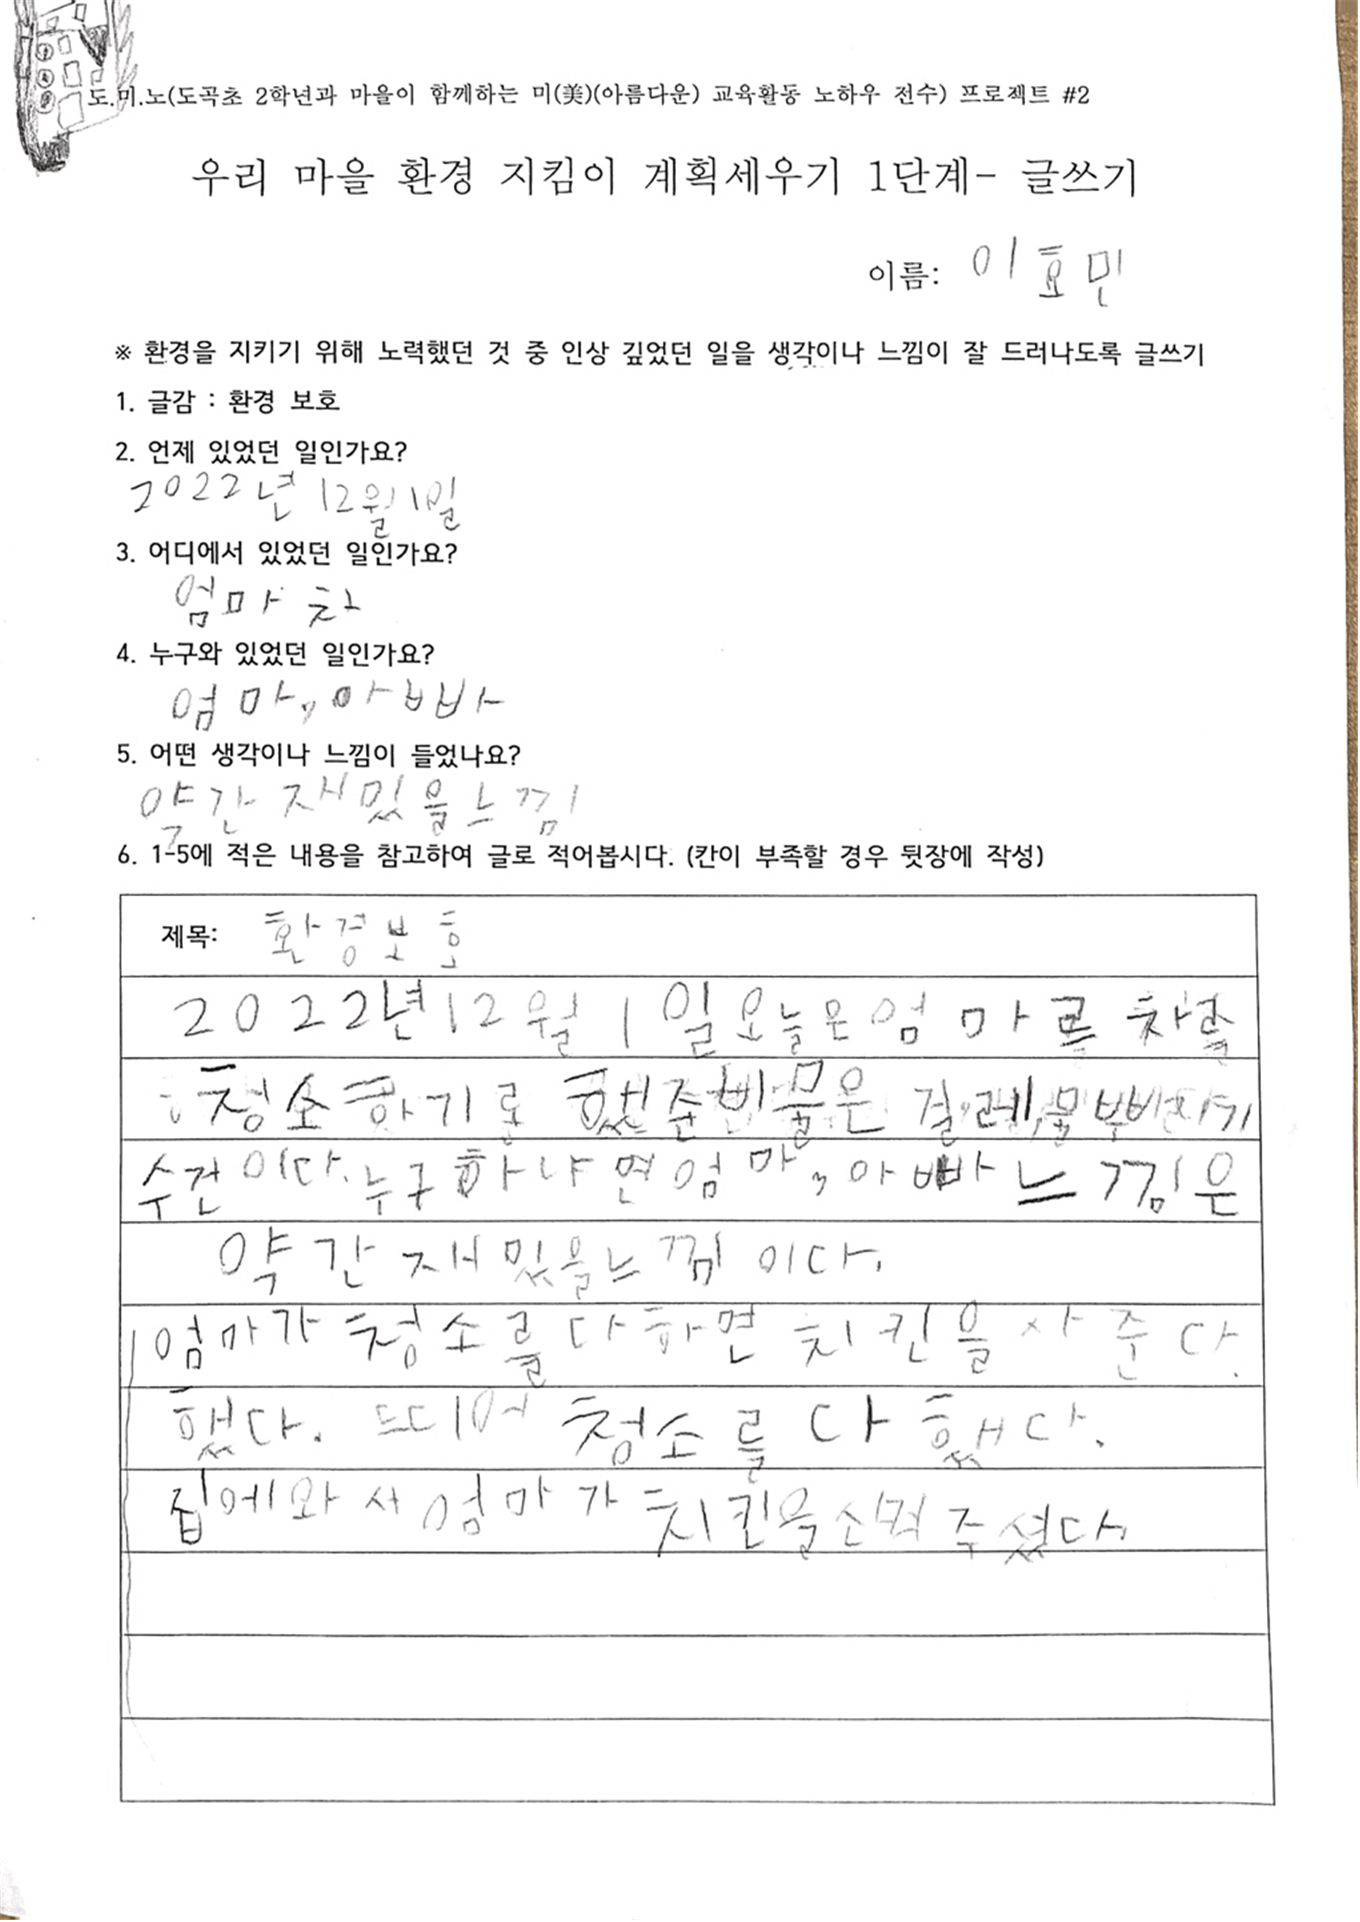 도.미.노(도곡초 2학년과 마을이 함께하는 미(美)(아름다운) 교육활동 노하우 전수) 프로젝트 #2
우리 마을 환경 지킴이 계획세우기 1단계- 글쓰기
이름: 이효민
※ 환경을 지키기 위해 노력했던 것 중 인상 깊었던 일을 생각이나 느낌이 잘 드러나도록 글쓰기
1. 글감 : 환경 보호
2. 언제 있었던 일인가요?
2022년 12월 1일
3. 어디에서 있었던 일인가요?
엄마 차
4. 누구와 있었던 일인가요?
엄마, 아빠
5. 어떤 생각이나 느낌이 들었나요?
약간 재밌을 느낌
6. 1-5에 적은 내용을 참고하여 글로 적어봅시다. (칸이 부족할 경우 뒷장에 작성)
제목: 환경보호
2022년 12월 1일 오늘은 엄마 차를
청소하기로 했 준비물은 걸레, 물
수건이다. 누구 하냐면 엄마, 아빠 느낌은
약간 재밌을 느낌이다.
엄마가 청소를 다하면 치킨을 사준다.
했다. 드디어 청소를 다 했다.
집에 와서 엄마가 치킨을 주셨다.